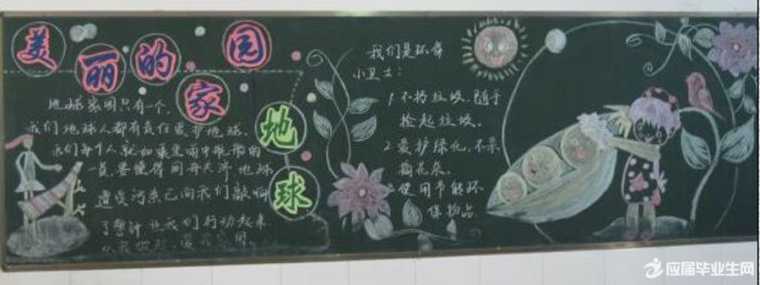 美丽的家园
地球
地球家园只有一个,
我们地球人都有责任爱护地球.
我们每个人就如乘坐雨中
一员 要使得同舟共济 地球
遭受污染已向我们敲响
了警钟 让我们行动起来
我们是环保
小卫士:
1.不扔垃圾.随手
捡起垃圾.
2.爱护绿化,不采
摘花朵.
3.使用节能环
保物品
应届毕业生网